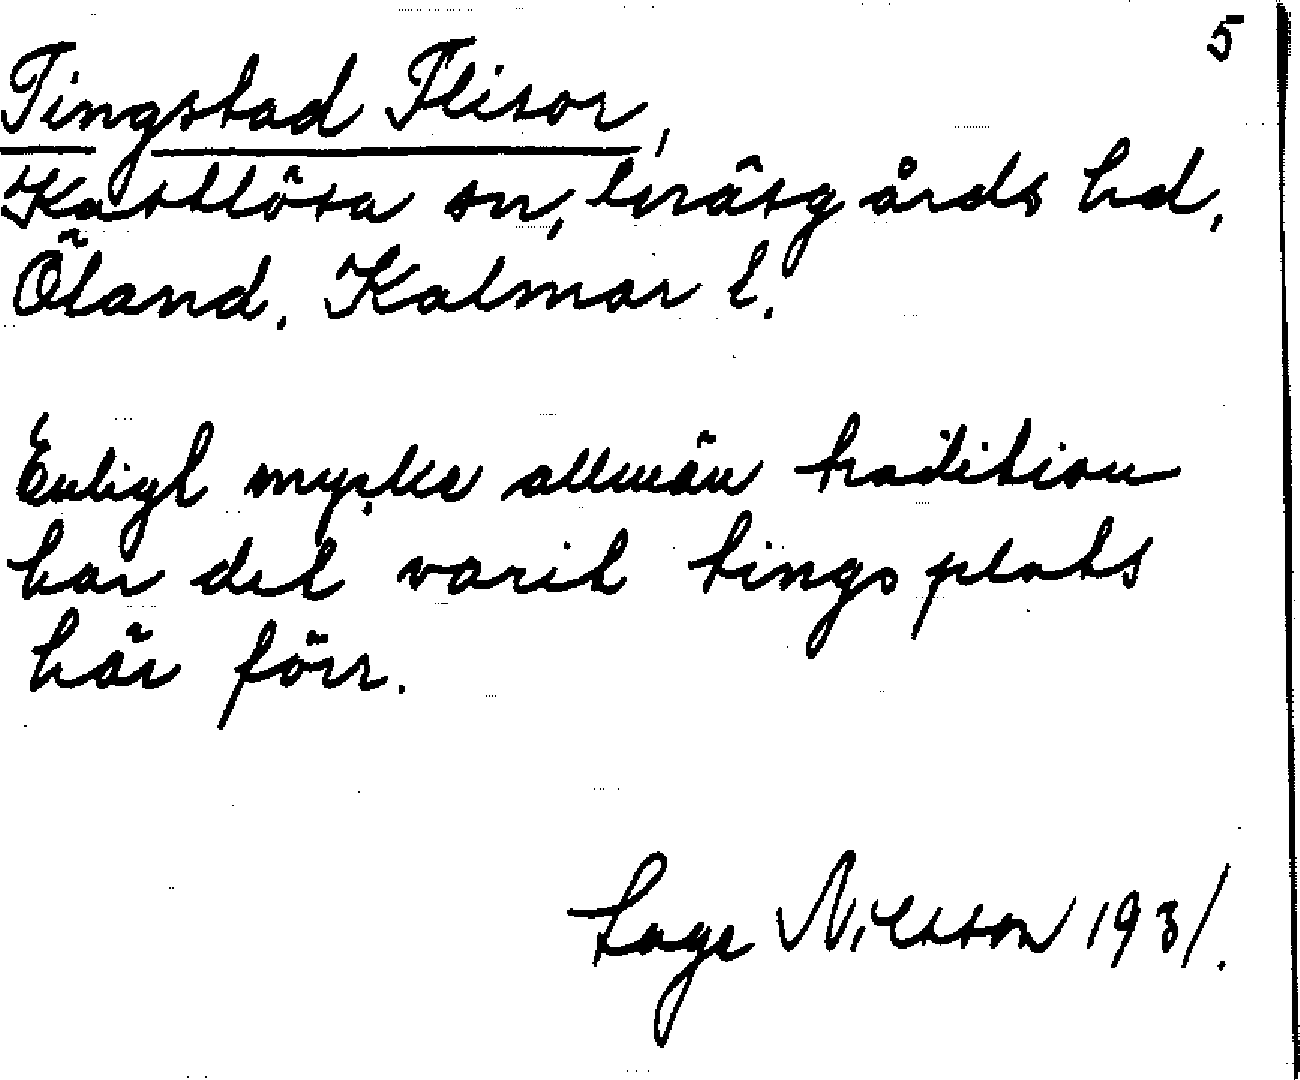 5
Tingstad Flisor,
Kastlösa sn, Gräsgårds hd,
Öland. Kalmar l.
Enligt mycke allmän tradition
har det varit tingsplats
här förr.
Tage Nilsson 1931.